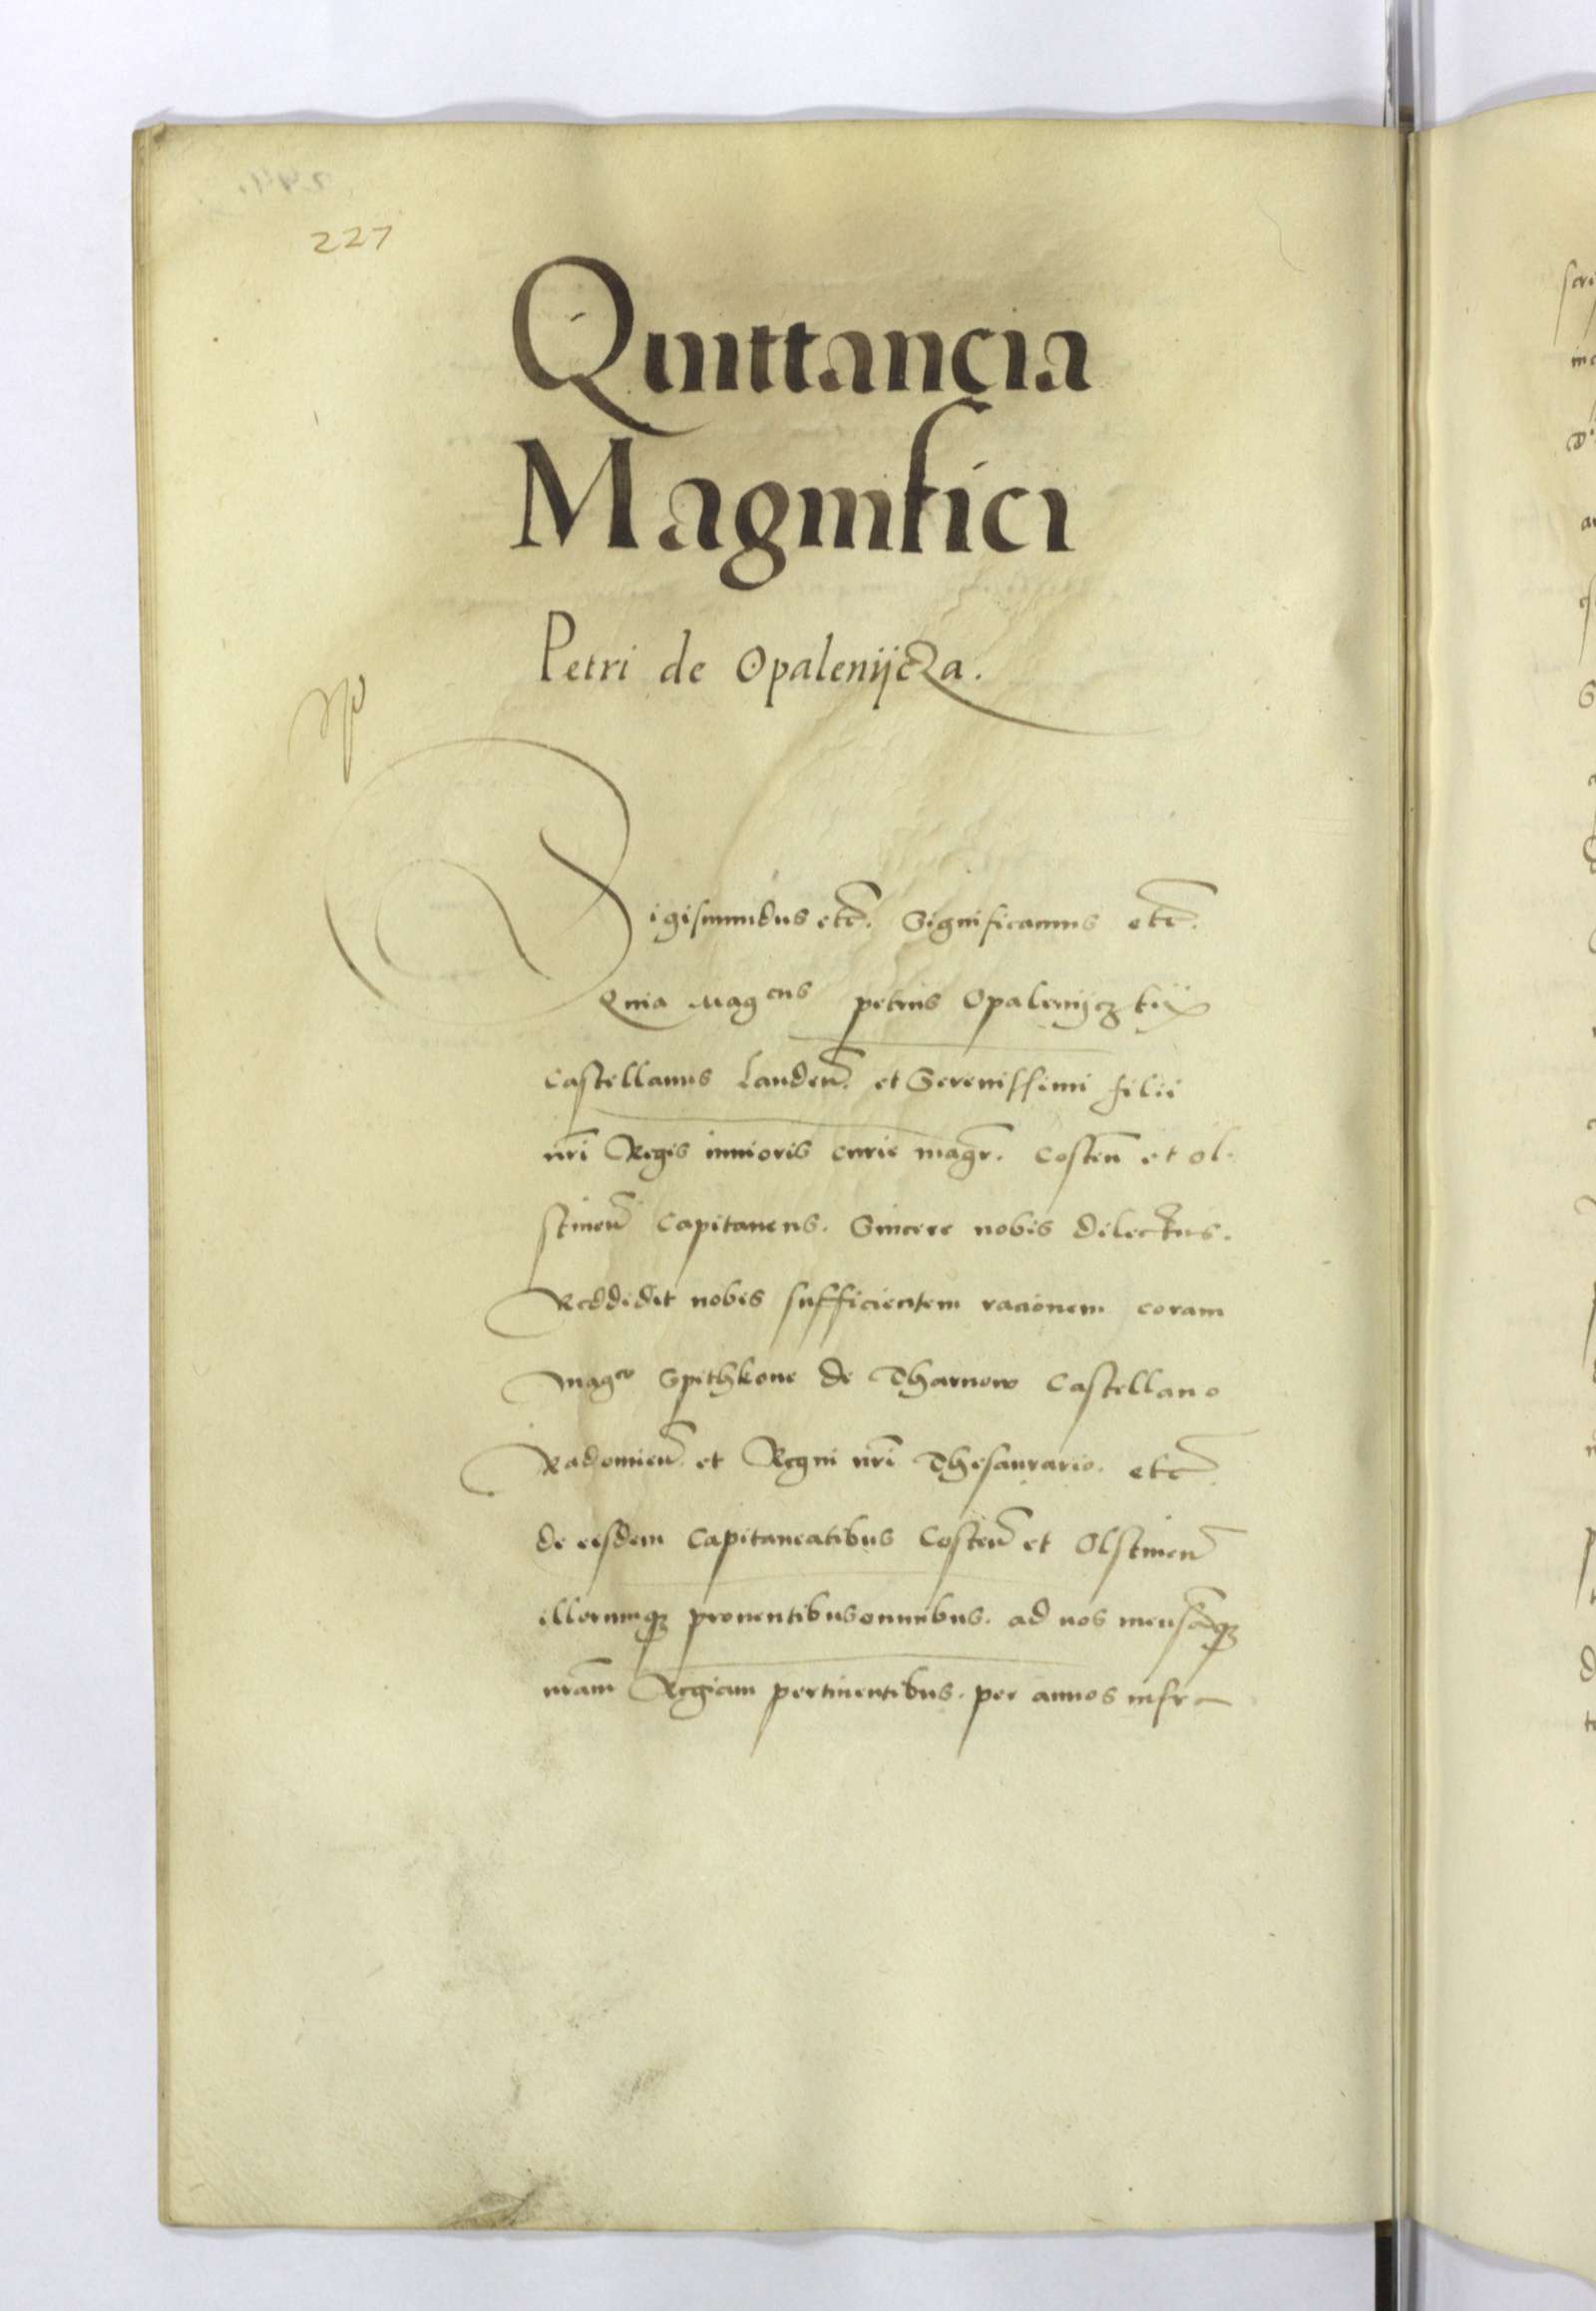 227
Quittancia
Magnifici
Petri de Opalenijcza.
Sigismundus etc. Significamus etc.
Quia Mag cus petrus Opalenijczkij
Castellanus Landen. et Serenissimi filii
nri Regis iunioris curie magr. Costen et Ol
stinen Capitaneus. Sincere nobis dilectus.
Reddidit nobis sufficientem racionem coram
Mag co Spithkone de Tharnow Castellano
Radomien. et Regni nri Thesaurario. etc
de eisdem Capitaneatibus Costen et Olstinen
illorumq prouentibus omnibus. ad nos mensaq
nram Regiam pertinentibus. per annos infra